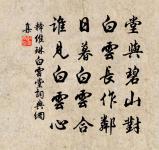 堂與碧山對
白雲長作鄰
日暮白雲合
誰見白雲心
釋維琳白雲堂詞典網